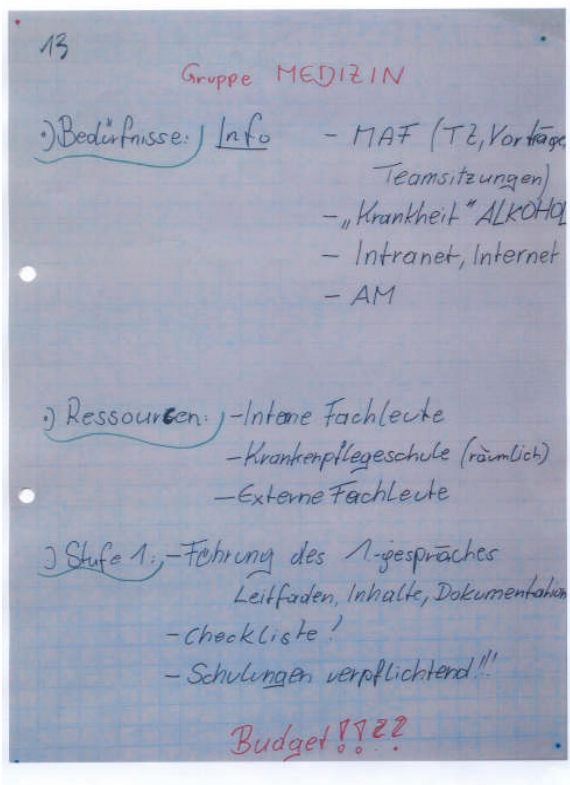 13
Gruppe MEDIZIN
·) Bedürfnisse: Info - MAF (TZ, Vorträge,
Teamsitzungen)
- „Krankheit" ALKOHOL
- Intranet, Internet
- AM
·) Ressourcen: - Interne Fachleute
- Krankenpflegeschule (räumlich)
- Externe Fachleute
·) Stufe 1: - Führung des 1-gespräches
Leitfaden, Inhalte, Dokumentation
- Checkliste!
- Schulungen verpflichtend!!!
Budget!!??